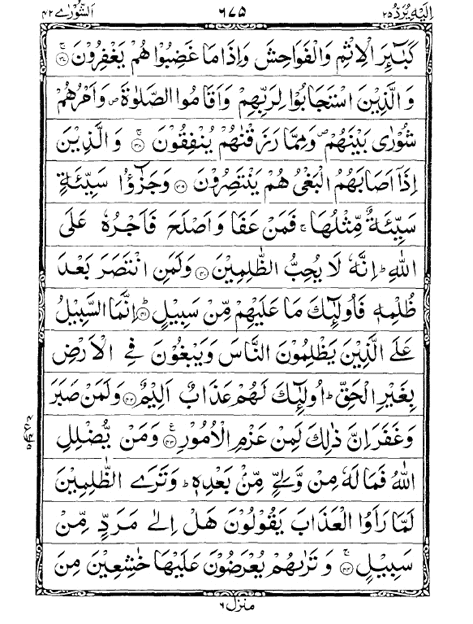 اِلَیْهِ یُرَدُّ ۲۵ ۶۷۵ الشُّوْرٰی ۴۲
كَبٰٓئِرَ الْاِثْمِ وَالْفَوَاحِشَ وَاِذَا مَا غَضِبُوْا هُمْ یَغْفِرُوْنَ ۚ‏﴿۳۷﴾
وَ الَّذِیْنَ اسْتَجَابُوْا لِرَبِّهِمْ وَاَقَامُوا الصَّلٰوةَ ۪ وَاَمْرُهُمْ
شُوْرٰی بَیْنَهُمْ ۪ وَمِمَّا رَزَقْنٰهُمْ یُنْفِقُوْنَ ۚ‏﴿۳۸﴾ وَ الَّذِیْنَ
اِذَاۤ اَصَابَهُمُ الْبَغْیُ هُمْ یَنْتَصِرُوْنَ ﴿۳۹﴾ وَجَزٰٓؤُا سَیِّئَةٍ
سَیِّئَةٌ مِّثْلُهَا ۚ فَمَنْ عَفَا وَاَصْلَحَ فَاَجْرُهٗ عَلَی
اللّٰهِ ؕ اِنَّهٗ لَا یُحِبُّ الظّٰلِمِیْنَ ﴿۴۰﴾ وَلَمَنِ انْتَصَرَ بَعْدَ
ظُلْمِهٖ فَاُولٰٓئِكَ مَا عَلَیْهِمْ مِّنْ سَبِیْلٍ ؕ‏﴿۴۱﴾ اِنَّمَا السَّبِیْلُ
عَلَی الَّذِیْنَ یَظْلِمُوْنَ النَّاسَ وَیَبْغُوْنَ فِی الْاَرْضِ
بِغَیْرِ الْحَقِّ ؕ اُولٰٓئِكَ لَهُمْ عَذَابٌ اَلِیْمٌ ﴿۴۲﴾ وَلَمَنْ صَبَرَ
وَغَفَرَ اِنَّ ذٰلِكَ لَمِنْ عَزْمِ الْاُمُوْرِ ۧ‏﴿۴۳﴾ وَمَنْ یُّضْلِلِ
اللّٰهُ فَمَا لَهٗ مِنْ وَّلِیٍّ مِّنْۢ بَعْدِهٖ ؕ وَتَرَی الظّٰلِمِیْنَ
لَمَّا رَاَوُا الْعَذَابَ یَقُوْلُوْنَ هَلْ اِلٰی مَرَدٍّ مِّنْ
سَبِیْلٍ ۚ‏﴿۴۴﴾ وَ تَرٰىهُمْ یُعْرَضُوْنَ عَلَیْهَا خٰشِعِیْنَ مِنَ
منزل ۶